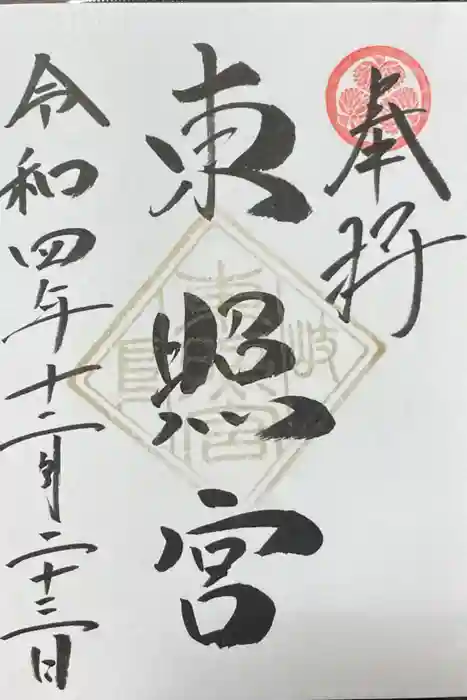 奉拝
東照宮
令和四年十二月二十三日